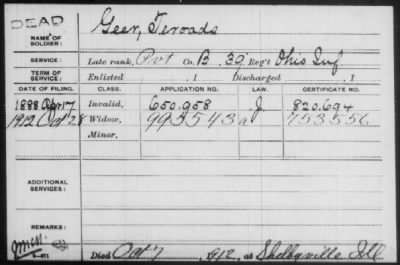 DEAD
NAME OF SOLDIER: Geer, Teroads
SERVICE: Late rank, Pvt Co. B, 39 Reg't Ohio Inf.
TERM OF SERVICE: Enlisted , 1 Discharged , 1
DATE OF FILING. CLASS. APPLICATION NO. LAW. CERTIFICATE NO.
1888 Apr 17 Invalid, 650.958 J 820.694
1912 Oct 28 Widow, 993543 a 753556
Minor,
ADDITIONAL SERVICES:
REMARKS:
Died Oct 7, 1912, at Shelbyville Ill